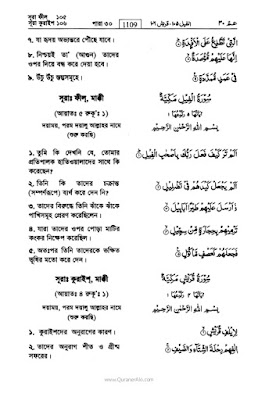 সূরা ফীল ১০৫
সূরা কুরাইশ ১০৬
পারা ৩০
1109
الفيل ١٠٥، قريش ١٠٦
عم ٣٠
৭. যা হৃদয় অভ্যন্তরে পৌঁছে যাবে।
الَّتِي تَطَّلِعُ عَلَى الْأَفْئِدَةِ
৮. নিশ্চয়ই তা' (আগুন) তাদের
ওপর দিয়ে বন্ধ করে দেয়া হবে।
إِنَّهَا عَلَيْهِمْ مُؤْصَدَةٌ
৯. উঁচু উঁচু স্তম্ভসমূহে।
فِي عَمَدٍ مُمَدَّدَةٍ
সূরাঃ ফীল, মাক্কী
سُورَةُ الْفِيلِ مَكِّيَّةٌ
(আয়াতঃ ৫ রুকু'ঃ ১)
اٰيَاتُهَا ٥ رُكُوْعُهَا ١
দয়াময়, পরম দয়ালু আল্লাহর নামে
(শুরু করছি)
بِسْمِ اللهِ الرَّحْمٰنِ الرَّحِيْمِ
১. তুমি কি দেখনি যে, তোমার
প্রতিপালক হাতিওয়ালাদের সাথে কি
করেছেন?
أَلَمْ تَرَ كَيْفَ فَعَلَ رَبُّكَ بِأَصْحٰبِ الْفِيلِ
২. তিনি কি তাদের চক্রান্ত
(সম্পূর্ণরূপে) ব্যর্থ করে দেন নি?
أَلَمْ يَجْعَلْ كَيْدَهُمْ فِي تَضْلِيلٍ
৩. তাদের বিরুদ্ধে তিনি ঝাঁকে ঝাঁকে
পাখিসমূহ প্রেরণ করেছিলেন।
وَأَرْسَلَ عَلَيْهِمْ طَيْرًا أَبَابِيلَ
৪. যারা তাদের ওপর পোড়া মাটির
কংকর নিক্ষেপ করেছিল।
تَرْمِيهِمْ بِحِجَارَةٍ مِنْ سِجِّيلٍ
৫. অতঃপর তিনি তাদেরকে ভক্ষিত
ভূষির মতো করে দেন।
فَجَعَلَهُمْ كَعَصْفٍ مَأْكُولٍ
সূরাঃ কুরাইশ, মাক্কী
سُورَةُ قُرَيْشٍ مَكِّيَّةٌ
(আয়াতঃ ৪ রুকু'ঃ ১)
اٰيَاتُهَا ٤ رُكُوْعُهَا ١
দয়াময়, পরম দয়ালু আল্লাহর নামে
(শুরু করছি)
بِسْمِ اللهِ الرَّحْمٰنِ الرَّحِيْمِ
১. কুরাইশদের অনুরাগের কারণ।
لِإِيلٰفِ قُرَيْشٍ
২. তাদের অনুরাগ শীত ও গ্রীষ্ম
সফরের।
إِيلٰفِهِمْ رِحْلَةَ الشِّتَاءِ وَالصَّيْفِ
www.QuranerAlo.com